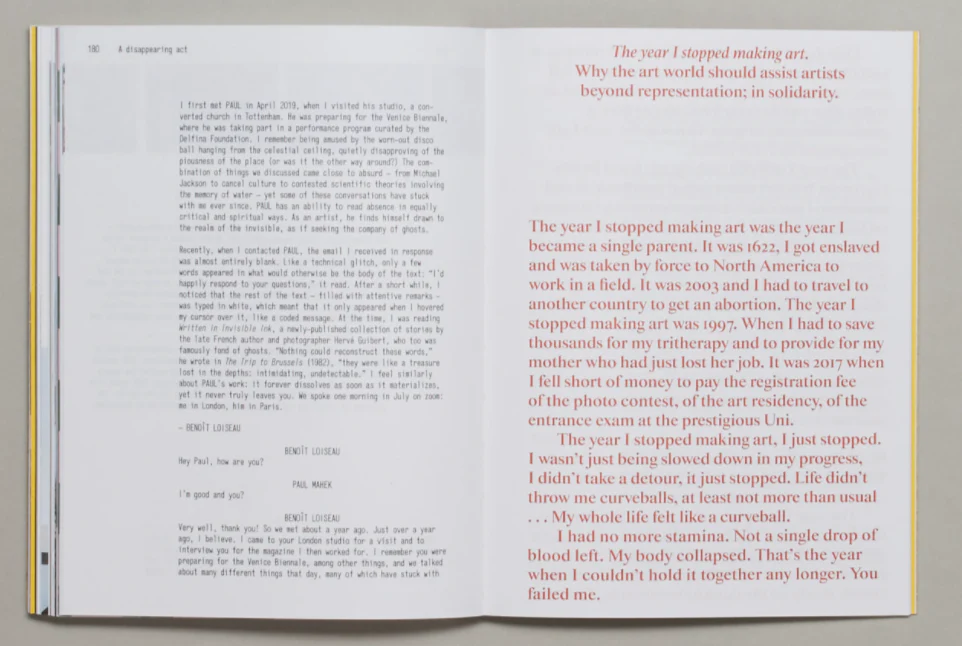 180 A disappearing act
I first met PAUL in April 2019, when I visited his studio, a con-
verted church in Tottenham. He was preparing for the Venice Biennale,
where he was taking part in a performance program curated by the
Delfina Foundation. I remember being amused by the worn-out disco
ball hanging from the celestial ceiling, quietly disapproving of the
piousness of the place (or was it the other way around?) The com-
bination of things we discussed came close to absurd – from Michael
Jackson to cancel culture to contested scientific theories involving
the memory of water – yet some of these conversations have stuck
with me ever since. PAUL has an ability to read absence in equally
critical and spiritual ways. As an artist, he finds himself drawn to
the realm of the invisible, as if seeking the company of ghosts.
Recently, when I contacted PAUL, the email I received in response
was almost entirely blank. Like a technical glitch, only a few
words appeared in what would otherwise be the body of the text: "I'd
happily respond to your questions," it read. After a short while, I
noticed that the rest of the text – filled with attentive remarks –
was typed in white, which meant that it only appeared when I hovered
my cursor over it, like a coded message. At the time, I was reading
Written in Invisible Ink, a newly-published collection of stories by
the late French author and photographer Hervé Guibert, who too was
famously fond of ghosts. "Nothing could reconstruct these words,"
he wrote in The Trip to Brussels (1982), "they were like a treasure
lost in the depths: intimidating, undetectable." I feel similarly
about PAUL's work: it forever dissolves as soon as it materializes,
yet it never truly leaves you. We spoke one morning in July on zoom:
me in London, him in Paris.
– BENOÎT LOISEAU
BENOÎT LOISEAU
Hey Paul, how are you?
PAUL MAHEK
I'm good and you?
BENOÎT LOISEAU
Very well, thank you! So we met about a year ago. Just over a year
ago, I believe. I came to your London studio for a visit and to
interview you for the magazine I then worked for. I remember you were
preparing for the Venice Biennale, among other things, and we talked
about many different things that day, many of which have stuck with
The year I stopped making art.
Why the art world should assist artists
beyond representation; in solidarity.
The year I stopped making art was the year I
became a single parent. It was 1622, I got enslaved
and was taken by force to North America to
work in a field. It was 2003 and I had to travel to
another country to get an abortion. The year I
stopped making art was 1997. When I had to save
thousands for my tritherapy and to provide for my
mother who had just lost her job. It was 2017 when
I fell short of money to pay the registration fee
of the photo contest, of the art residency, of the
entrance exam at the prestigious Uni.
The year I stopped making art, I just stopped.
I wasn't just being slowed down in my progress,
I didn't take a detour, it just stopped. Life didn't
throw me curveballs, at least not more than usual
... My whole life felt like a curveball.
I had no more stamina. Not a single drop of
blood left. My body collapsed. That's the year
when I couldn't hold it together any longer. You
failed me.